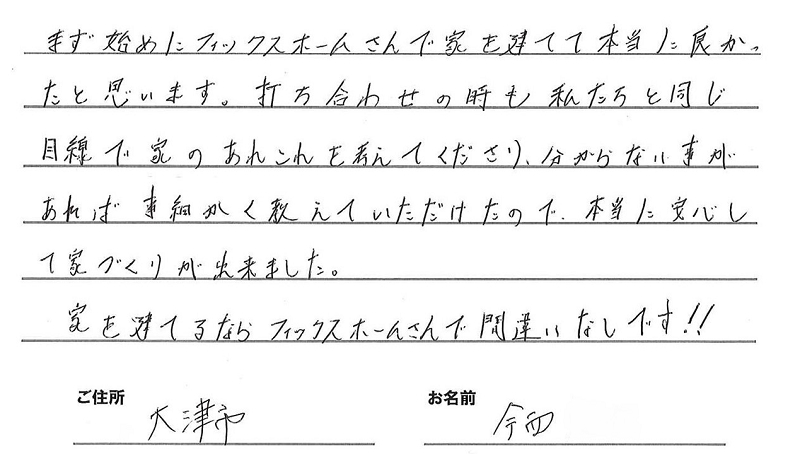 まず始めにフィックスホームさんで家を建てて本当に良かっ
たと思います。打ち合わせの時も私たちと同じ
目線で家のあれこれを考えてくださり、分からない事が
あれば事細かく教えていただけたので、本当に安心し
て家づくりが出来ました。
家を建てるならフィックスホームさんで間違いなしです!!
ご住所 お名前
大津市 今西